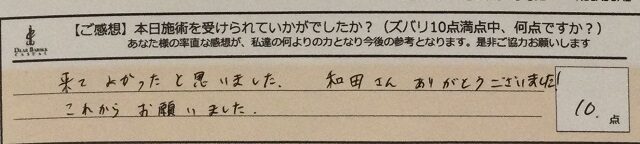 【ご感想】本日施術を受けられていかがでしたか？（ズバリ10点満点中、何点ですか？）
あなた様の率直な感想が、私達の何よりの力となり今後の参考となります。是非ご協力お願いします
DEAR BARBER
CASUAL
来て よかったと思いました. 和田さん ありがとうございました!
これから お願いました.
10.点